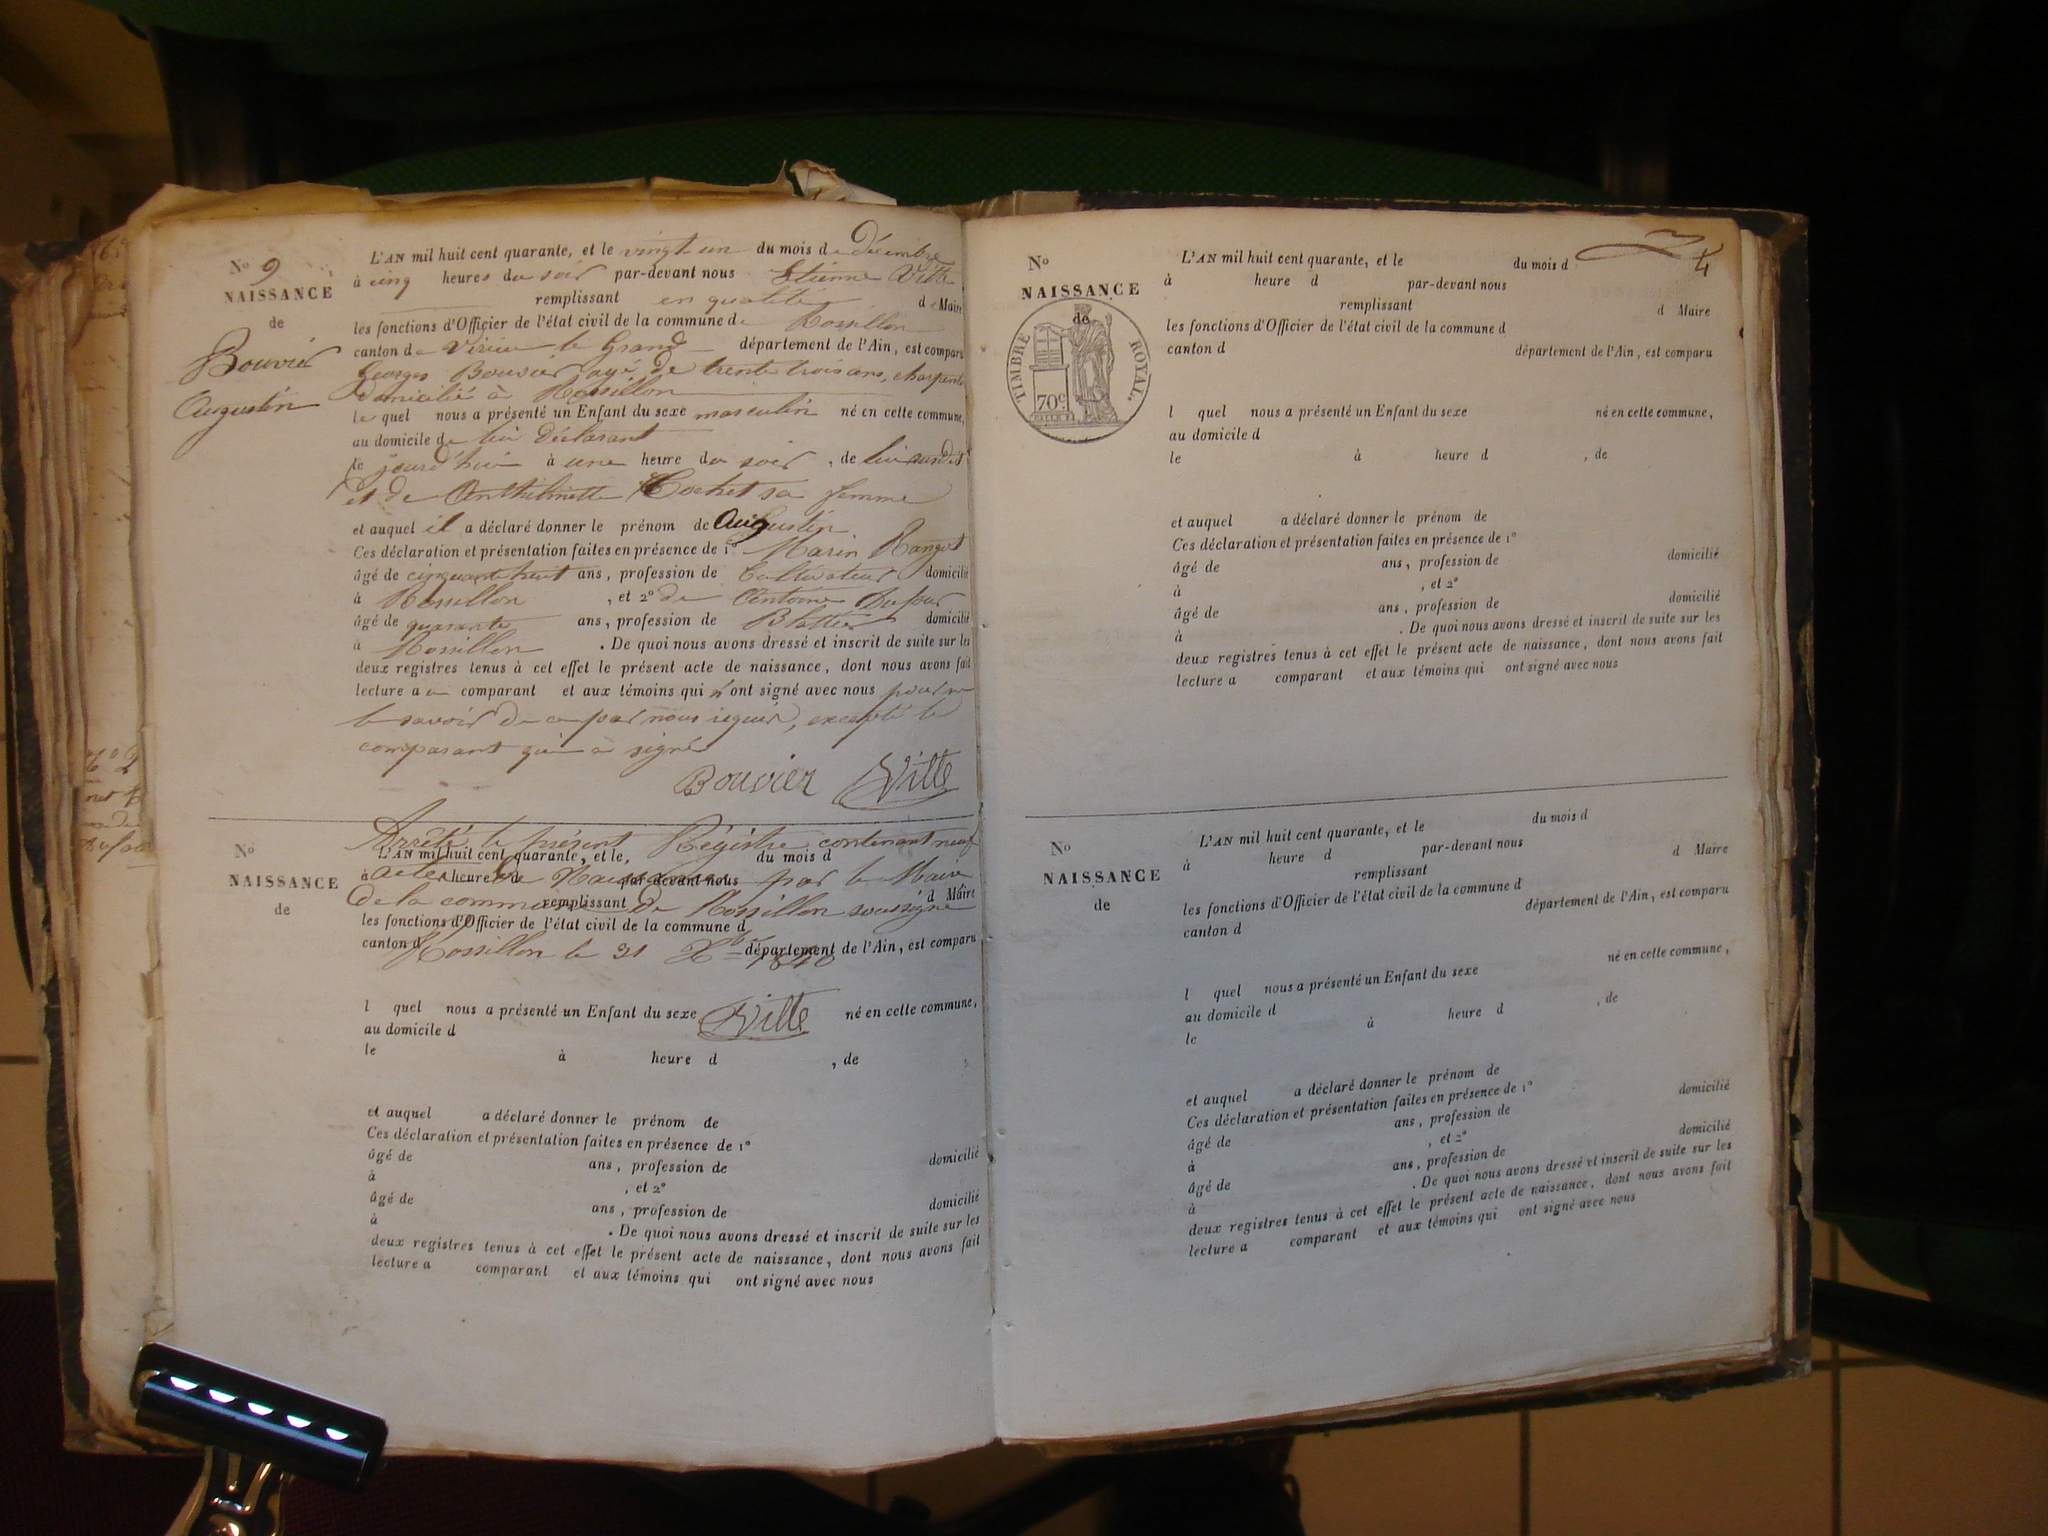 N° 9
NAISSANCE
de
Bouvier
Augustin
L'AN mil huit cent quarante, et le vingt un du mois de décembre
à cinq heures du soir par-devant nous Etienne Ville
remplissant en qualité de Maire
les fonctions d'Officier de l'état civil de la commune de Rossillon
canton de Virieu le Grand département de l'Ain, est comparu
Georges Bouvier agé de trente trois ans, charpentier
domicilié à Rossillon
le quel nous a présenté un Enfant du sexe masculin né en cette commune,
au domicile de lui déclarant
le jourd'hui à une heure du soir, de lui susdit
et de Anthelmette Cochet sa femme
et auquel il a déclaré donner le prénom de Augustin
Ces déclaration et présentation faites en présence de 1° Marin
âgé de cinquante huit ans, profession de Cultivateur domicilié
à Rossillon, et 2° de Antoine
âgé de quarante ans, profession de domicilié
à Rossillon. De quoi nous avons dressé et inscrit de suite sur les
deux registres tenus à cet effet le présent acte de naissance, dont nous avons fait
lecture au comparant et aux témoins qui n'ont signé avec nous pour ne
le savoir de ce par nous requis, excepté le
comparant qui a signé
Bouvier Ville
N°
NAISSANCE
de
Arrêté le présent Régistre contenant neuf
L'AN mil huit cent quarante, et le, du mois d
actes de Naissance par le Maire
à heure de par-devant nous
de la commune de Rossillon soussigné
remplissant d Maire
les fonctions d'Officier de l'état civil de la commune d
Rossillon le 31 Xbre 1840
canton d département de l'Ain, est comparu
l quel nous a présenté un Enfant du sexe né en cette commune,
Ville
au domicile d
le à heure d , de
et auquel a déclaré donner le prénom de
Ces déclaration et présentation faites en présence de 1°
âgé de ans, profession de domicilié
à , et 2°
âgé de ans, profession de domicilié
à . De quoi nous avons dressé et inscrit de suite sur les
deux registres tenus à cet effet le présent acte de naissance, dont nous avons fait
lecture a comparant et aux témoins qui ont signé avec nous
4
N°
NAISSANCE
de
TIMBRE ROYAL.
70c
L'AN mil huit cent quarante, et le du mois d
à heure d par-devant nous
remplissant d Maire
les fonctions d'Officier de l'état civil de la commune d
canton d département de l'Ain, est comparu
l quel nous a présenté un Enfant du sexe né en cette commune,
au domicile d
le à heure d , de
et auquel a déclaré donner le prénom de
Ces déclaration et présentation faites en présence de 1°
âgé de ans, profession de domicilié
à , et 2°
âgé de ans, profession de domicilié
à . De quoi nous avons dressé et inscrit de suite sur les
deux registres tenus à cet effet le présent acte de naissance, dont nous avons fait
lecture a comparant et aux témoins qui ont signé avec nous
N°
NAISSANCE
de
L'AN mil huit cent quarante, et le du mois d
à heure d par-devant nous
remplissant d Maire
les fonctions d'Officier de l'état civil de la commune d
canton d département de l'Ain, est comparu
l quel nous a présenté un Enfant du sexe né en cette commune,
au domicile d
le à heure d , de
et auquel a déclaré donner le prénom de
Ces déclaration et présentation faites en présence de 1°
âgé de ans, profession de domicilié
à , et 2°
âgé de ans, profession de domicilié
à . De quoi nous avons dressé et inscrit de suite sur les
deux registres tenus à cet effet le présent acte de naissance, dont nous avons fait
lecture a comparant et aux témoins qui ont signé avec nous